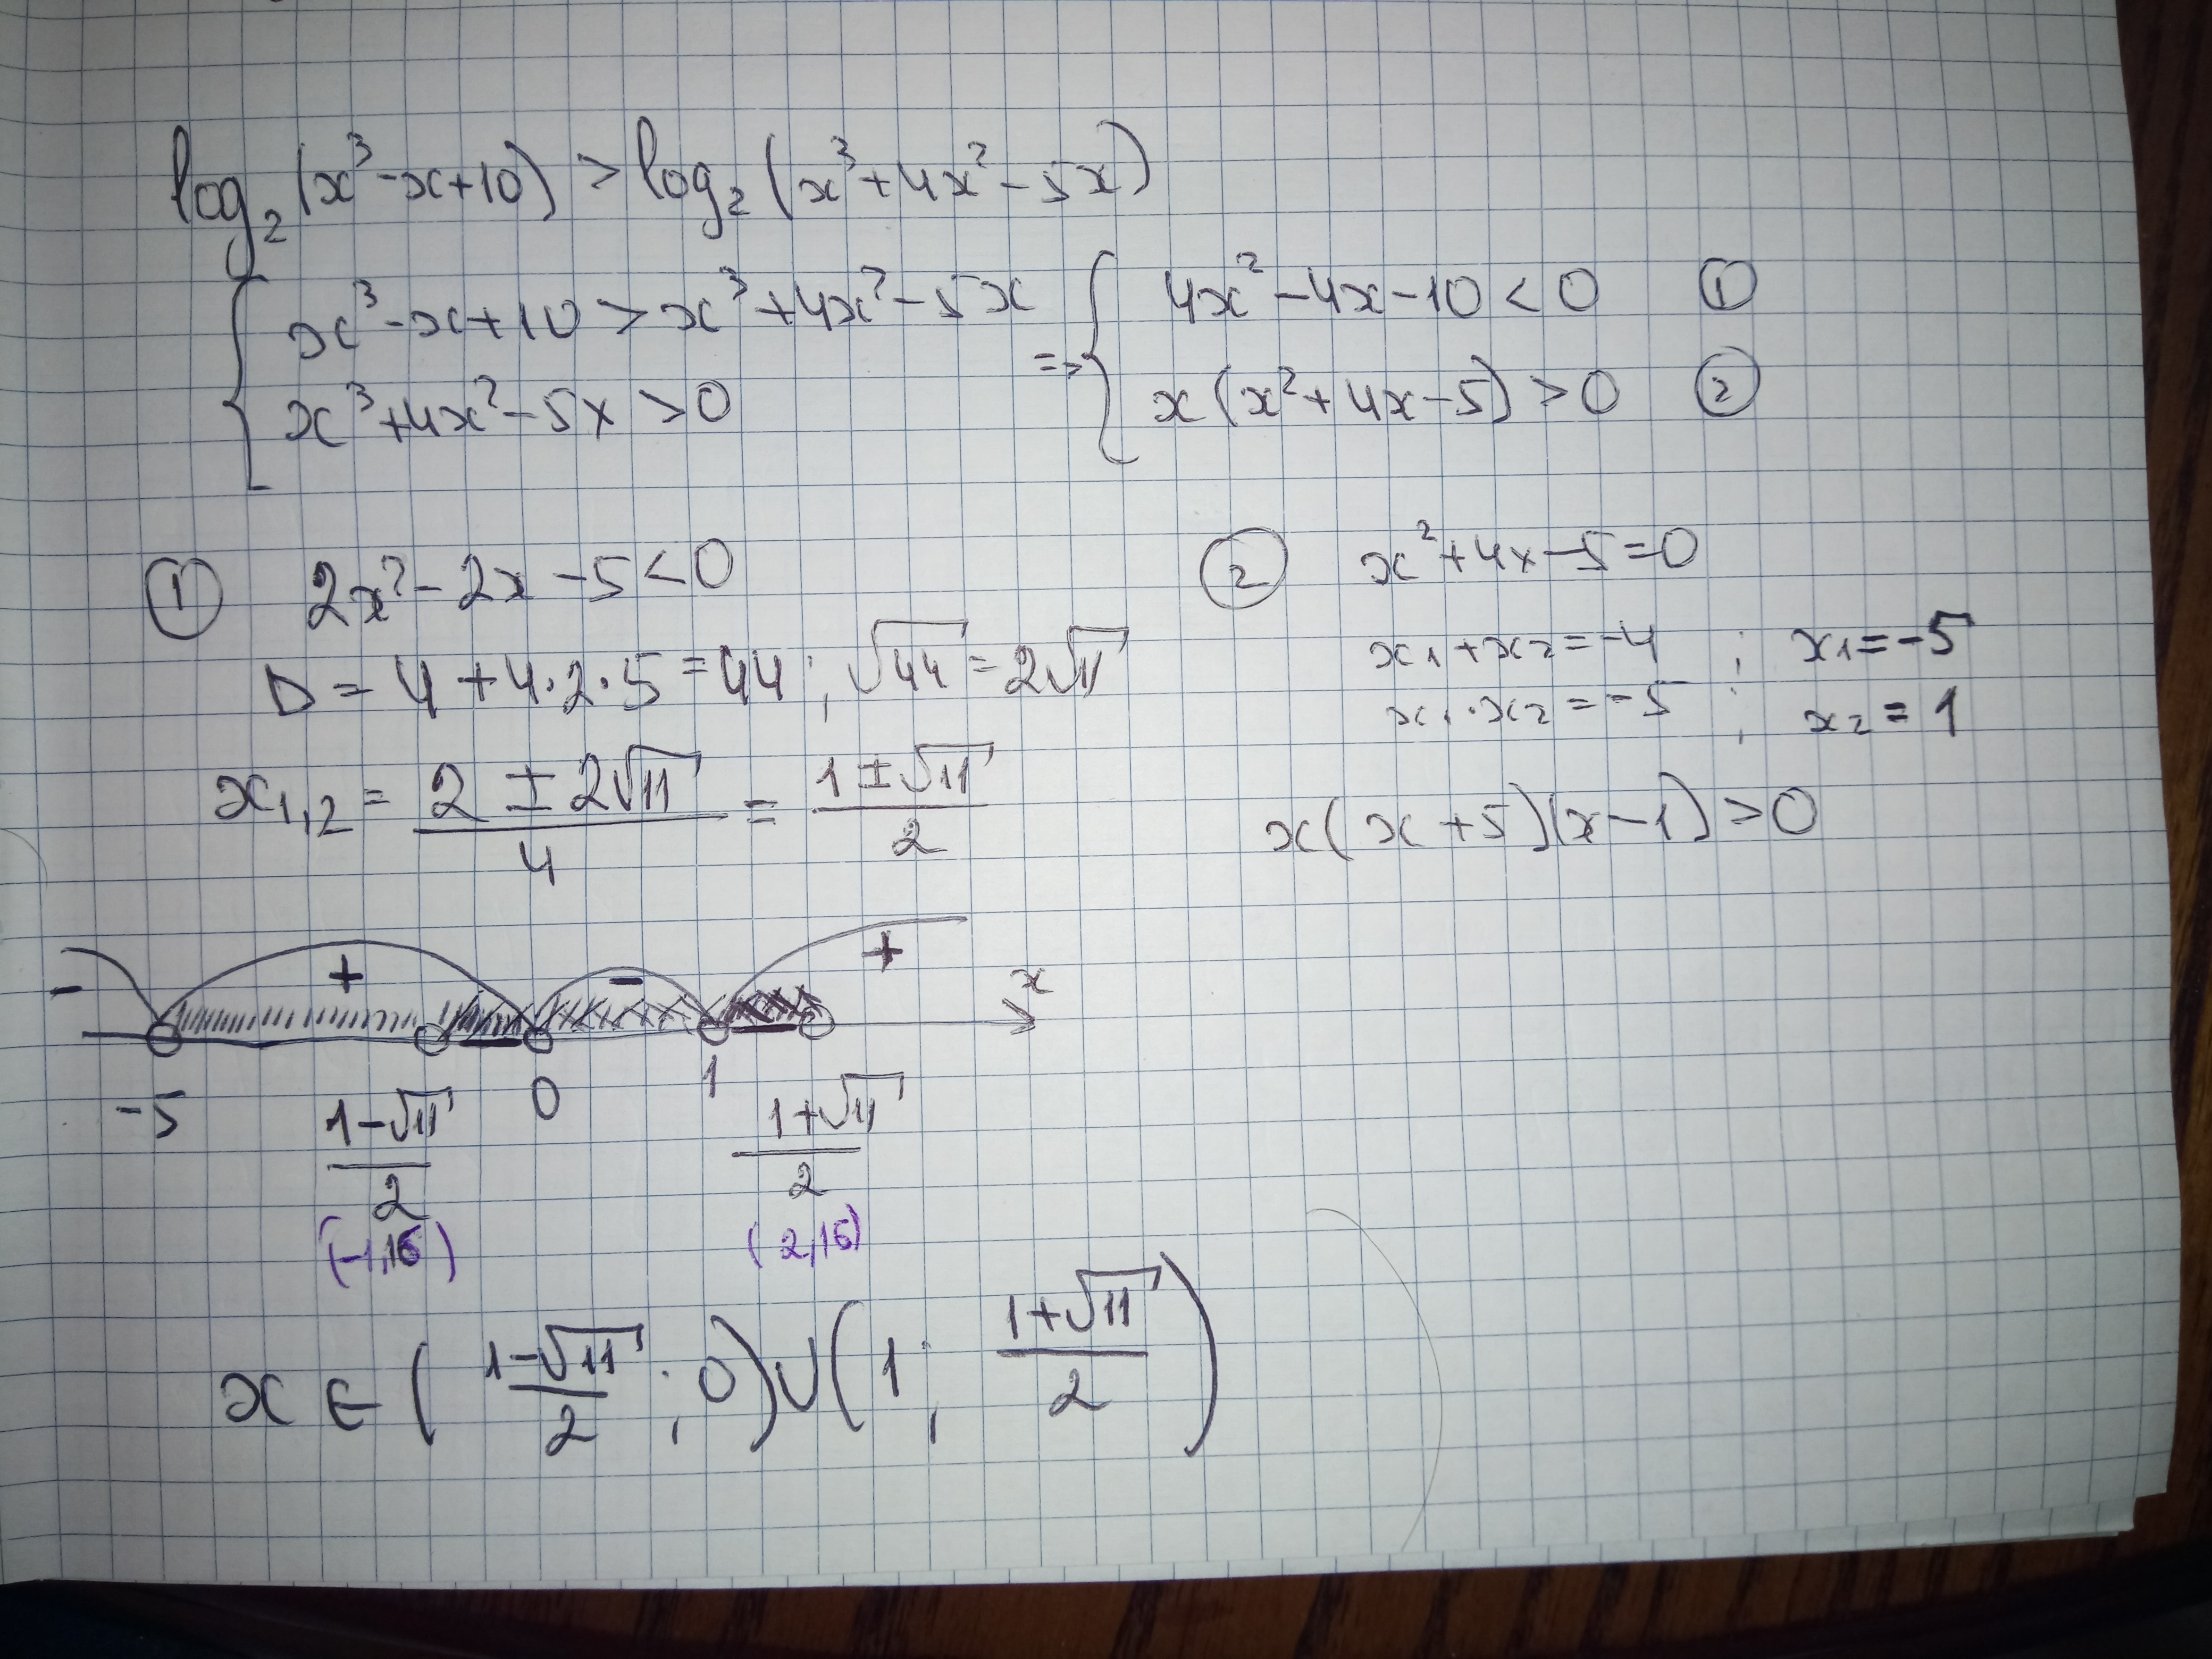 log₂(x³-x+10) > log₂(x³+4x²-5x)
{ x³-x+10 > x³+4x²-5x => { 4x²-4x-10 < 0 ①
x³+4x²-5x > 0 x(x²+4x-5) > 0 ②
① 2x²-2x-5 < 0
D = 4+4·2·5 = 44 ; √44 = 2√11
x₁,₂ = (2 ± 2√11)/4 = (1 ± √11)/2
② x²+4x-5=0
x₁+x₂=-4 ; x₁=-5
x₁·x₂=-5 ; x₂=1
x(x+5)(x-1)>0
- + - + x
-5 (1-√11)/2 0 1 (1+√11)/2
(-1,16) (2,16)
x ∈ ((1-√11)/2 ; 0) ∪ (1 ; (1+√11)/2)